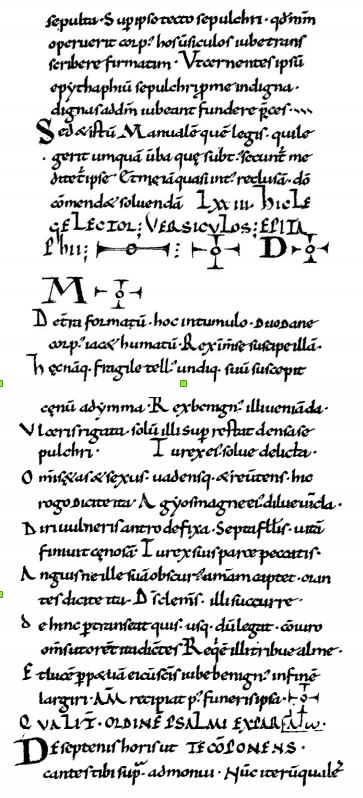 sepulta. Sup ipso tecto sepulchri. qđm̃m
operuerit corp' hos ũsiculos iube trans
scribere firmatim. Ut cernentes ipsũ
epythaphiũ sepulchri pme indigna.
dignas ad dm̃ iubeant fundere p̃ces.
Sed & istũ Manualẽ quẽ legis. qui le
gerit umquã ũba quę subt'. secunt' me
dit& & ipse Et me iã quasi int'. reclusã. dõ
cõmend& soluendã LXXIII. HIC LE
GE LECTOR; VERSICULOS; EPITA
PHII; D
M
De tr̃a formatũ. hoc in tumulo. Duodane
corp'. iac& humatũ. Rex im̃se suscipe illã.
Hęc nãq. fragile tell' undiq. suũ suscepit
cęnũ ad ymma. Rex benign'. illi ueniã da.
Ulceris rigata. solũ illi sup restat densa se
pulchri. Tu rex el'. solue delicta.
Om̃is & as & sexus. uadensq. & reũtens. hic
rogo Dicite ita. Agyos magne el'. dilue uincla.
Diri vulneris antro defixa. Septa fell̃is. uitã
finiuit cęnosã. Tu rex suis parce peccatis.
Anguis ne ille suã obscur'. animam captet. oran
tes dicite ita. Ds̃ clem̃s. illi succurre.
de hinc ptranseat quis. usq. dũ legat. cõiuro
om̃s ut orẽt ita dictẽs Reqẽ illi tribue alme.
Et lucẽ ppetuã ei cũ sc̃is iube benign'. in finẽ
largiri. AM̃ recipiat p'. funeris ipsa.
QUALIT̃. ORDINẼ PSALMI EX PAR
De septenis horis ut TE CÕPONENS.
cantes tibi sup'. admonui. Nũc iterũ qualẽ